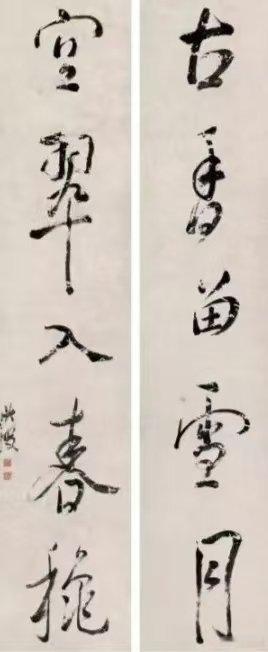 古香留雪月
空翠入春